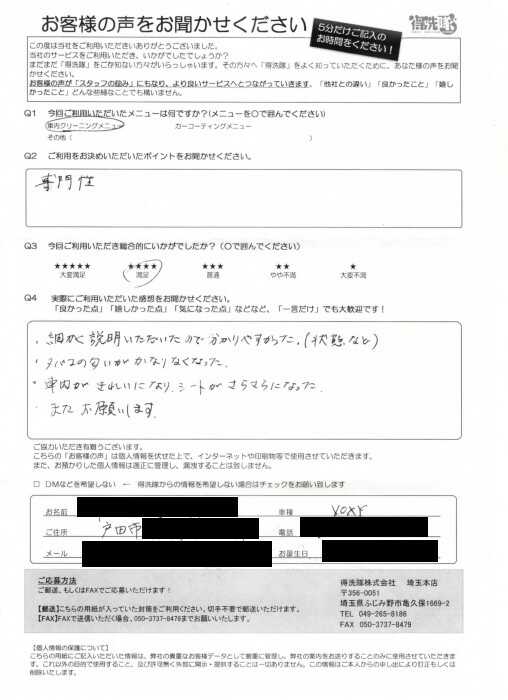 お客様の声をお聞かせください
5分だけご記入の
お時間をください!
得洗隊
この度は当社をご利用いただきありがとうございました。
当社のサービスをご利用いただき、いかがでしたでしょうか?
まだまだ「得洗隊」をご存知ない方々がいらっしゃいます。その方々へ「得洗隊」をよく知っていただくために、あなた様の声をお聞かせください。
お客様の声が「スタッフの励み」にもなり、より良いサービスへとつながっていきます。「他社との違い」「良かったこと」「嬉しかったこと」どんな些細なことでも構いません。
Q1 今回ご利用いただいたメニューは何ですか?(メニューを○で囲んでください)
車内クリーニングメニュー カーコーティングメニュー
その他( )
Q2 ご利用をお決めいただいたポイントをお聞かせください。
専門性
Q3 今回ご利用いただき総合的にいかがでしたか?(○で囲んでください)
★★★★★ ★★★★ ★★★ ★★ ★
大変満足 満足 普通 やや不満 大変不満
Q4 実際にご利用いただいた感想をお聞かせください。
「良かった点」「嬉しかった点」「気になった点」などなど、「一言だけ」でも大歓迎です!
・細かく説明いただいたので分かりやすかった。(状態など)
・タバコの匂いがかなりなくなった。
・車内がきれいになり、シートがさらさらになった。
・またお願いします。
ご協力いただき有難うございます。
こちらの「お客様の声」は個人情報を伏せた上で、インターネットや印刷物等で使用させていきます。
また、お預かりした個人情報は適正に管理し、漏洩することは致しません。
□ DMなどを希望しない ← 得洗隊からの情報を希望しない場合はチェックをお願い致します
お名前 車種 VOXY
ご住所 戸田市 電話
メール お誕生日
ご応募方法
ご郵送、もしくはFAXでご応募いただけます!
【郵送】こちらの用紙が入っていた封筒をご利用ください。切手不要で郵送いただけます。
【FAX】FAXで送信いただく場合、050-3737-8476までお願いいたします。
得洗隊株式会社 埼玉本店
〒356-0051
埼玉県ふじみ野市亀久保1669-2
TEL 049-265-8186
FAX 050-3737-8479
【個人情報の保護について】
こちらの用紙にご記入いただいた情報は、弊社の貴重なお客様データとして厳重に管理し、弊社の案内をお送りすることのみに使用させていただきます。これ以外の目的で使用すること、及び許可無く外部に開示・提供することは一切ありません。この情報はご本人からの申し出により訂正もしくは削除いたします。